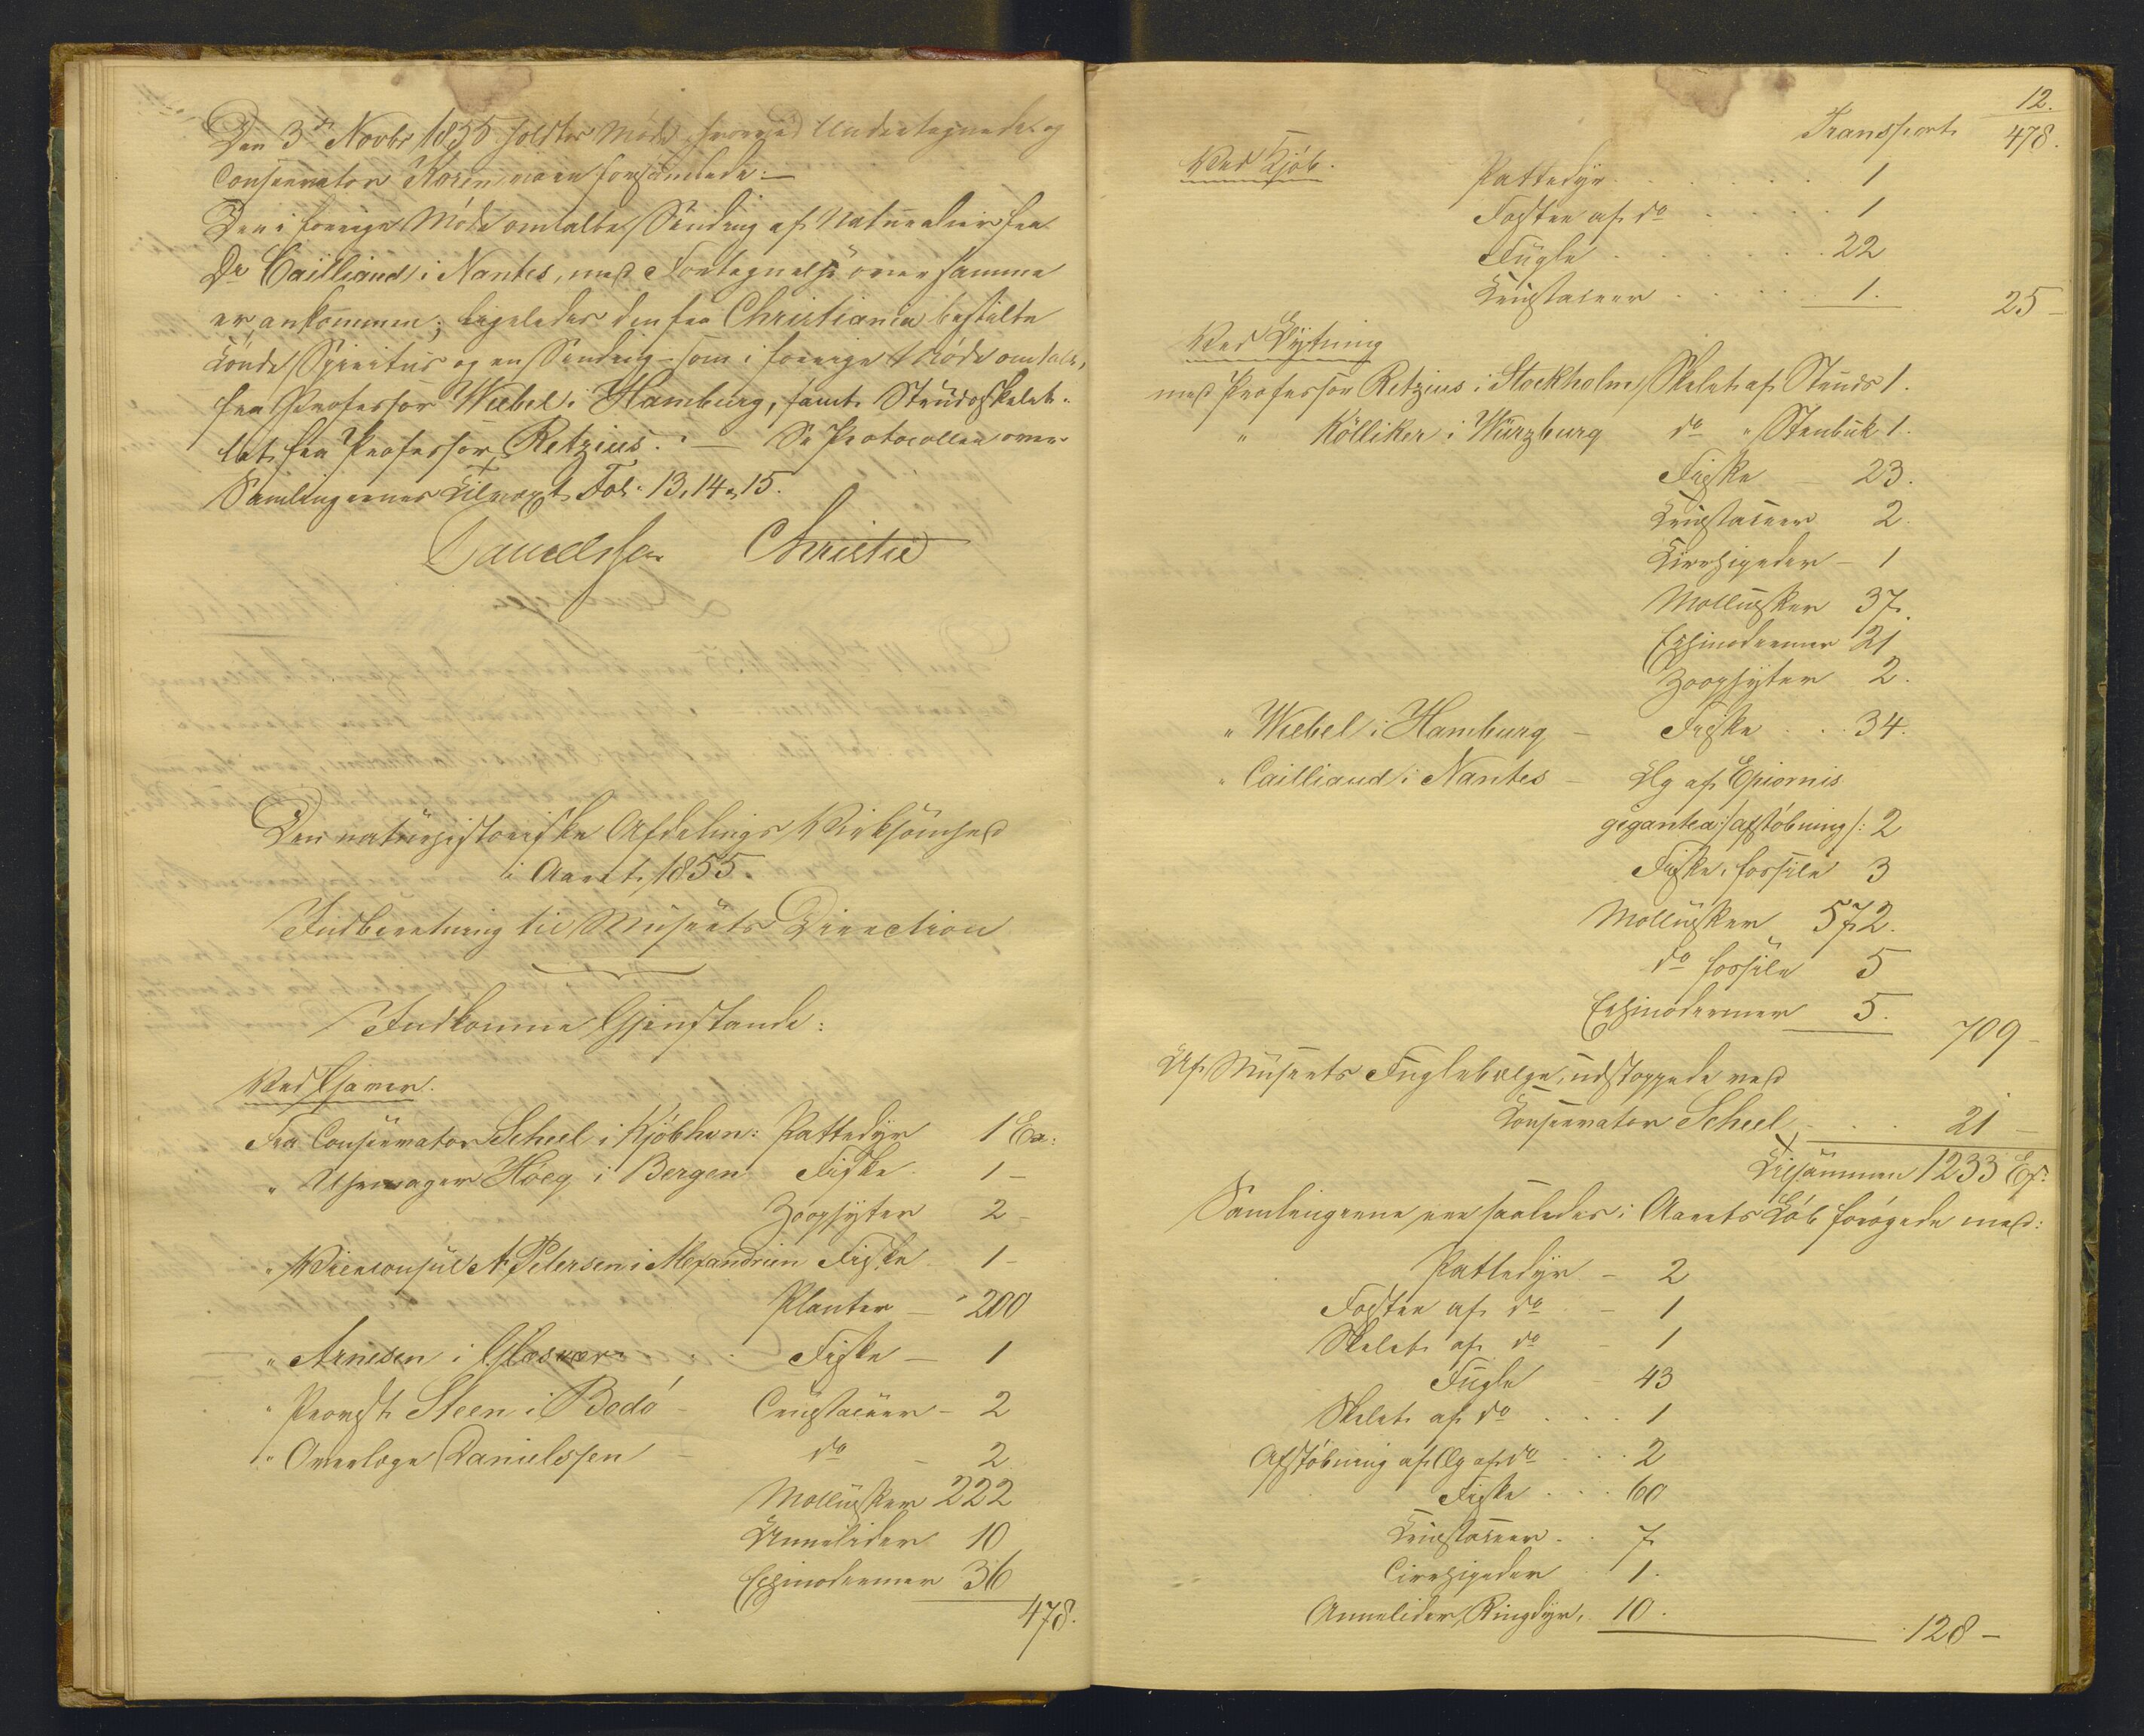 Den 3die Novbr 1855 holdtes Møde, hvorved Undertegnede og
Conservator Koren vare forsamlede. —
Den i forrige Møde omtalte Sending af Naturalier fra
Dr Cailliaud i Nantes, med Fortegnelse over samme
er ankommen; ligeledes den fra Christiania bestilte
Tønde Spiritus og en Sending som i forrige Møde omtalt,
fra Professor Wiebel i Hamburg, samt Strudsskelet-
tet fra Professor Retzius. — Se Protocollen over
Samlingernes Tilvæxt Fol. 13, 14 & 15.
Danielssen Christie
Den naturhistoriske Afdelings Virksomhed
i Aaret 1855.
Indberetning til Museets Direction
Indkomne Gjenstande:
Ved Gaver.
Fra Conservator Scheel i Kjöbhvn: Pattedyr 1 Ex:
" Uhrmager Höeg i Bergen Fiske 1 –
Zoophyter 2 –
" Viceconsul A. Petersen i Alexandrien Fiske 1 –
Planter – 200
" Arnesen i Glesvær Fiske — 1
" Provst Steen i Bodö – Crustaceer – 2
" Overlæge Danielssen – do – 2
Mollusker 222
Annelider 10
Echinodermer 36
478.
12.
Transport 478.
Ved Kjöb. Pattedyr 1
Foster af do 1
Fugle 22
Crustaceer 1. 25 –
Ved Bytning
med Professor Retzius i Stockholm, Skelet af Struds 1.
" Kölliker i Würzburg do " Stenbuk 1.
Fiske – 23.
Crustaceer 2.
Cirrhipeder – 1
Mollusker 37.
Echinodermer 21
Zoophyter 2.
" Wiebel i Hamburg – Fiske . . 34.
" Cailliaud i Nantes – Æg af Epiornis
gigantea /: afstöbning :/ 2
Fiske, fossile 3
Mollusker 572.
do fossile 5
Echinodermer 5. 709 –
Af Museets Fuglebælge, udstoppede ved
Conservator Scheel . . . 21 –
Tilsammen 1233 Ex:
Samlingerne ere saaledes i Aarets Löb forögede med:
Pattedyr – 2
Foster af do – 1
Skelet af do – 1
Fugle – 43
Skelet af do . . . 1
Afstöbning af Æg af do . . . 2
Fiske . . . 60
Crustaceer . . 7
Cirrhipeder . 1.
Annelider, Ringdyr, 10. 128 –